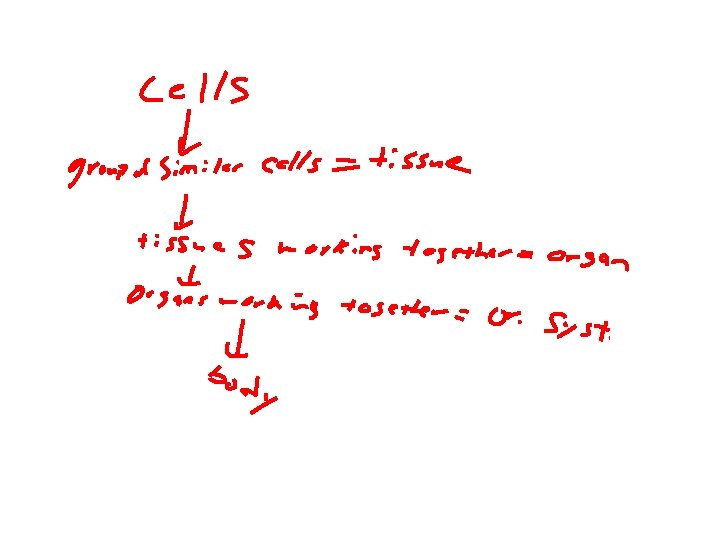 Cells
group of similar cells = tissue
tissues working together = organ
Organs working together = or. Syst.
body